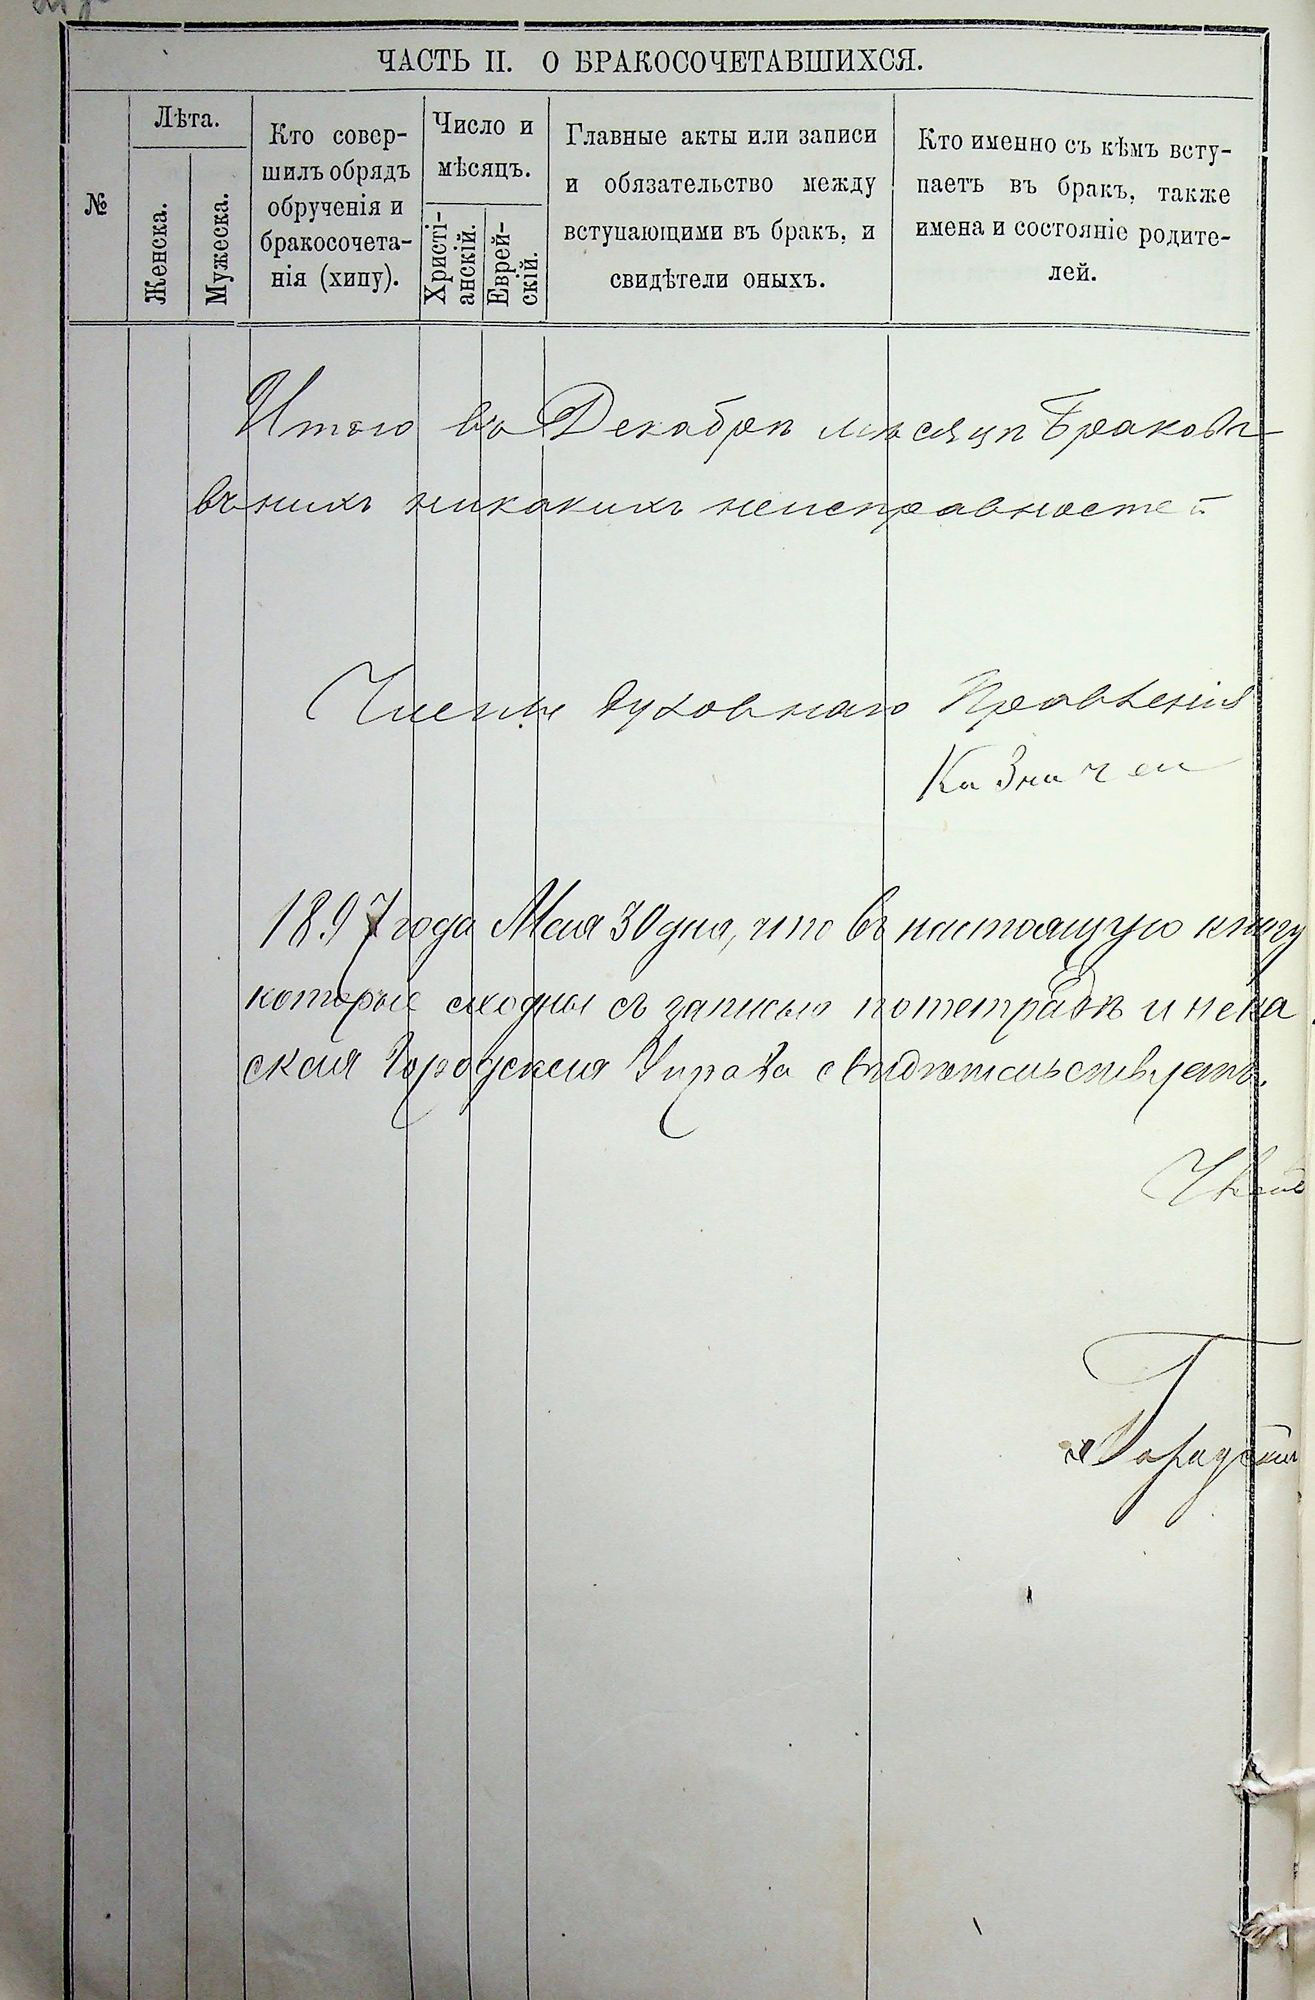 ЧАСТЬ II. О БРАКОСОЧЕТАВШИХСЯ.
№
Лѣта.
Женска.
Мужеска.
Кто совер-
шилъ обрядъ
обрученія и
бракосочета-
нія (хипу).
Число и
мѣсяцъ.
Христі-
анскій.
Еврей-
скій.
Главные акты или записи
и обязательство между
вступающими въ бракъ, и
свидѣтели оныхъ.
Кто именно съ кѣмъ всту-
паетъ въ бракъ, также
имена и состояніе родите-
лей.
Итого въ Декабрѣ мѣсяцѣ Браковъ
въ нихъ никакихъ неисправностей
Члены Духовнаго Правленія
Казначеи
1897 года Мая 30 дня, что въ настоящую книгу
которые сходны съ записью по тетрадѣ и нека
ская Городская Управа свидѣтельствуетъ.
Член
Городской